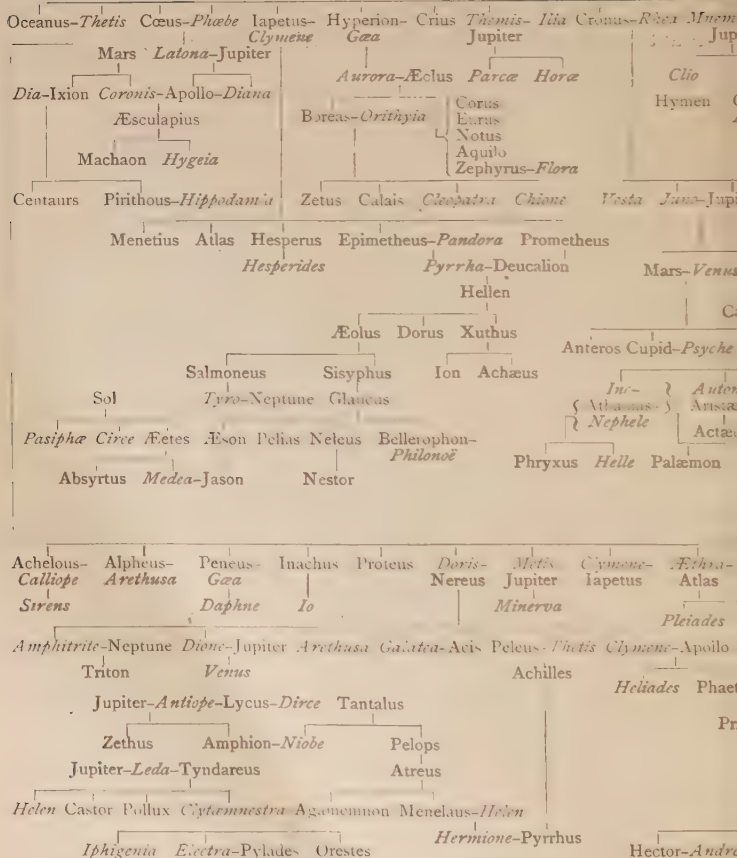 Oceanus-Thetis Cœus-Phœbe Iapetus- Hyperion- Crius Themis- Ilia Cronus-Rhea Mnem
Clymene Gæa Jupiter Jup
Mars Latona-Jupiter
Aurora-Æclus Parcæ Horæ Clio
Dia-Ixion Coronis-Apollo-Diana
Corus Hymen
Æsculapius Boreas-Orithyia Eurus
Notus
Machaon Hygeia Aquilo
Zephyrus-Flora
Centaurs Pirithous-Hippodamia Zetus Calais Cleopatra Chione Vesta Juno-Jupi
Menetius Atlas Hesperus Epimetheus-Pandora Prometheus
Hesperides Pyrrha-Deucalion Mars-Venus
Hellen
Æolus Dorus Xuthus
Anteros Cupid-Psyche
Salmoneus Sisyphus Ion Achæus
Sol Tyro-Neptune Glaucus Ino- Auton
Athamas- Aristæ
Nephele
Pasiphæ Circe Æetes Æson Pelias Neleus Bellerophon- Actæ
Philonoë
Phryxus Helle Palæmon
Absyrtus Medea-Jason Nestor
Achelous- Alpheus- Peneus- Inachus Proteus Doris- Metis Clymene- Æthra-
Calliope Arethusa Gæa Nereus Jupiter Iapetus Atlas
Sirens Daphne Io Minerva
Pleiades
Amphitrite-Neptune Dione-Jupiter Arethusa Galatea-Acis Peleus-Thetis Clymene-Apollo
Triton Venus Achilles
Heliades Phaet
Jupiter-Antiope-Lycus-Dirce Tantalus
Pr
Zethus Amphion-Niobe Pelops
Jupiter-Leda-Tyndareus Atreus
Helen Castor Pollux Clytæmnestra-Agamemnon Menelaus-Helen
Hermione-Pyrrhus
Iphigenia Electra-Pylades Orestes Hector-Andro